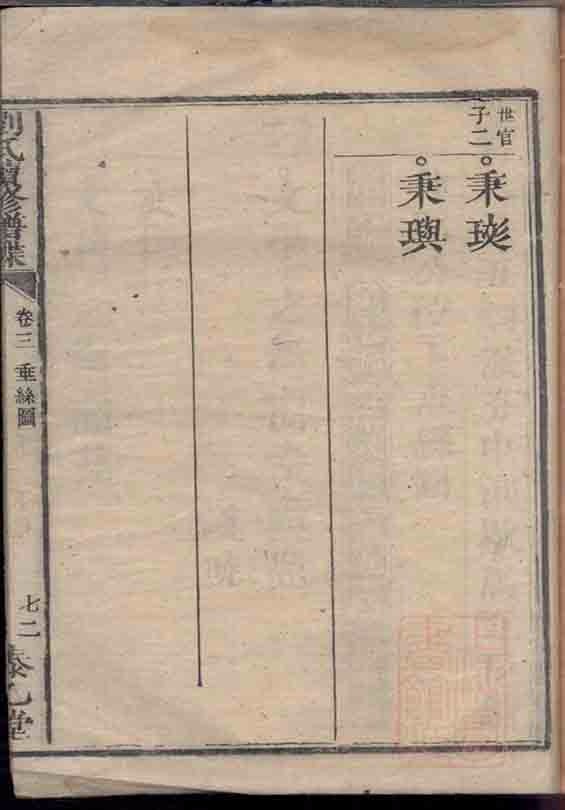 世官
子二
秉琰
秉璵
劉氏續修譜牒
卷三 垂絲圖
七二
泰乙堂